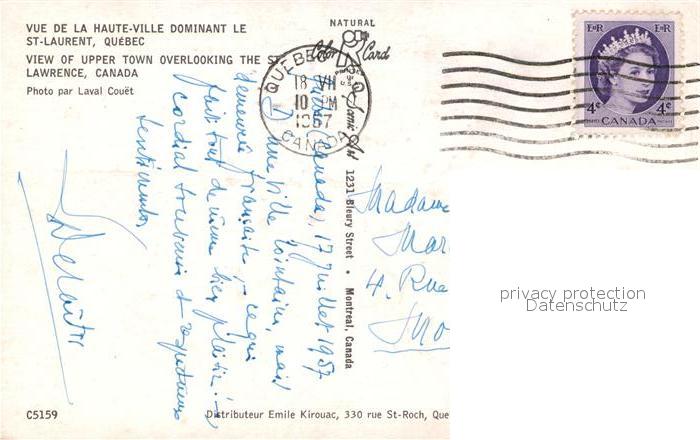 VUE DE LA HAUTE-VILLE DOMINANT LE
ST-LAURENT, QUÉBEC
VIEW OF UPPER TOWN OVERLOOKING THE ST
LAWRENCE, CANADA
Photo par Laval Couët
NATURAL
Color Card
Scenic Art 1231 Bleury Street • Montreal, Canada
QUEBEC P.Q.
18 VII
10 PM
1957
CANADA
EIIR EIIR
4¢ 4¢
CANADA
Québec (Canada), 17 juillet 1957
D'une ville lointaine, mais
demeurée française, – ce qui
fait tout de même bien plaisir! –
cordial souvenir et respectueux
sentiments
Madame
Mar
4. Rue
privacy protection
Datenschutz
C5159
Distributeur Emile Kirouac, 330 rue St-Roch, Que